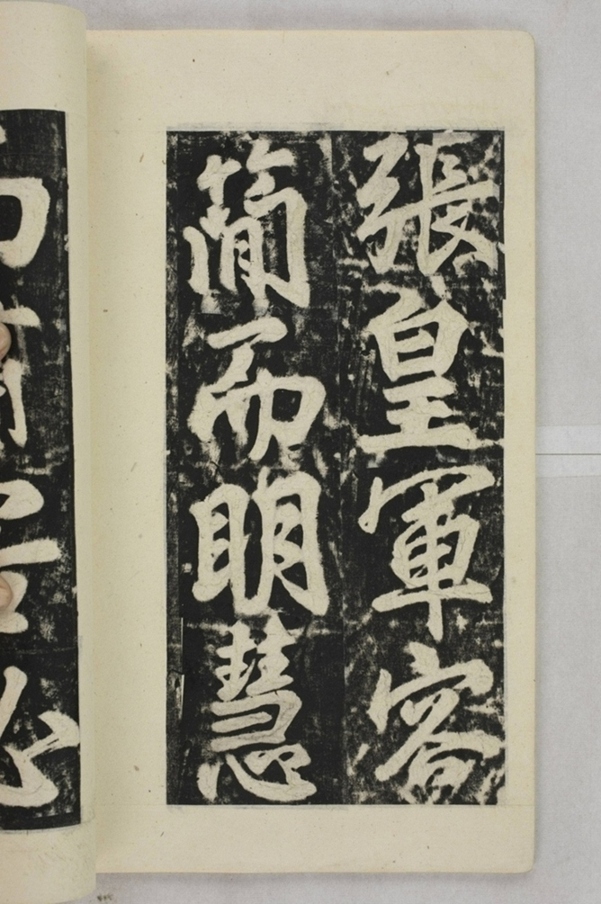 張皇軍容
簡而明慧